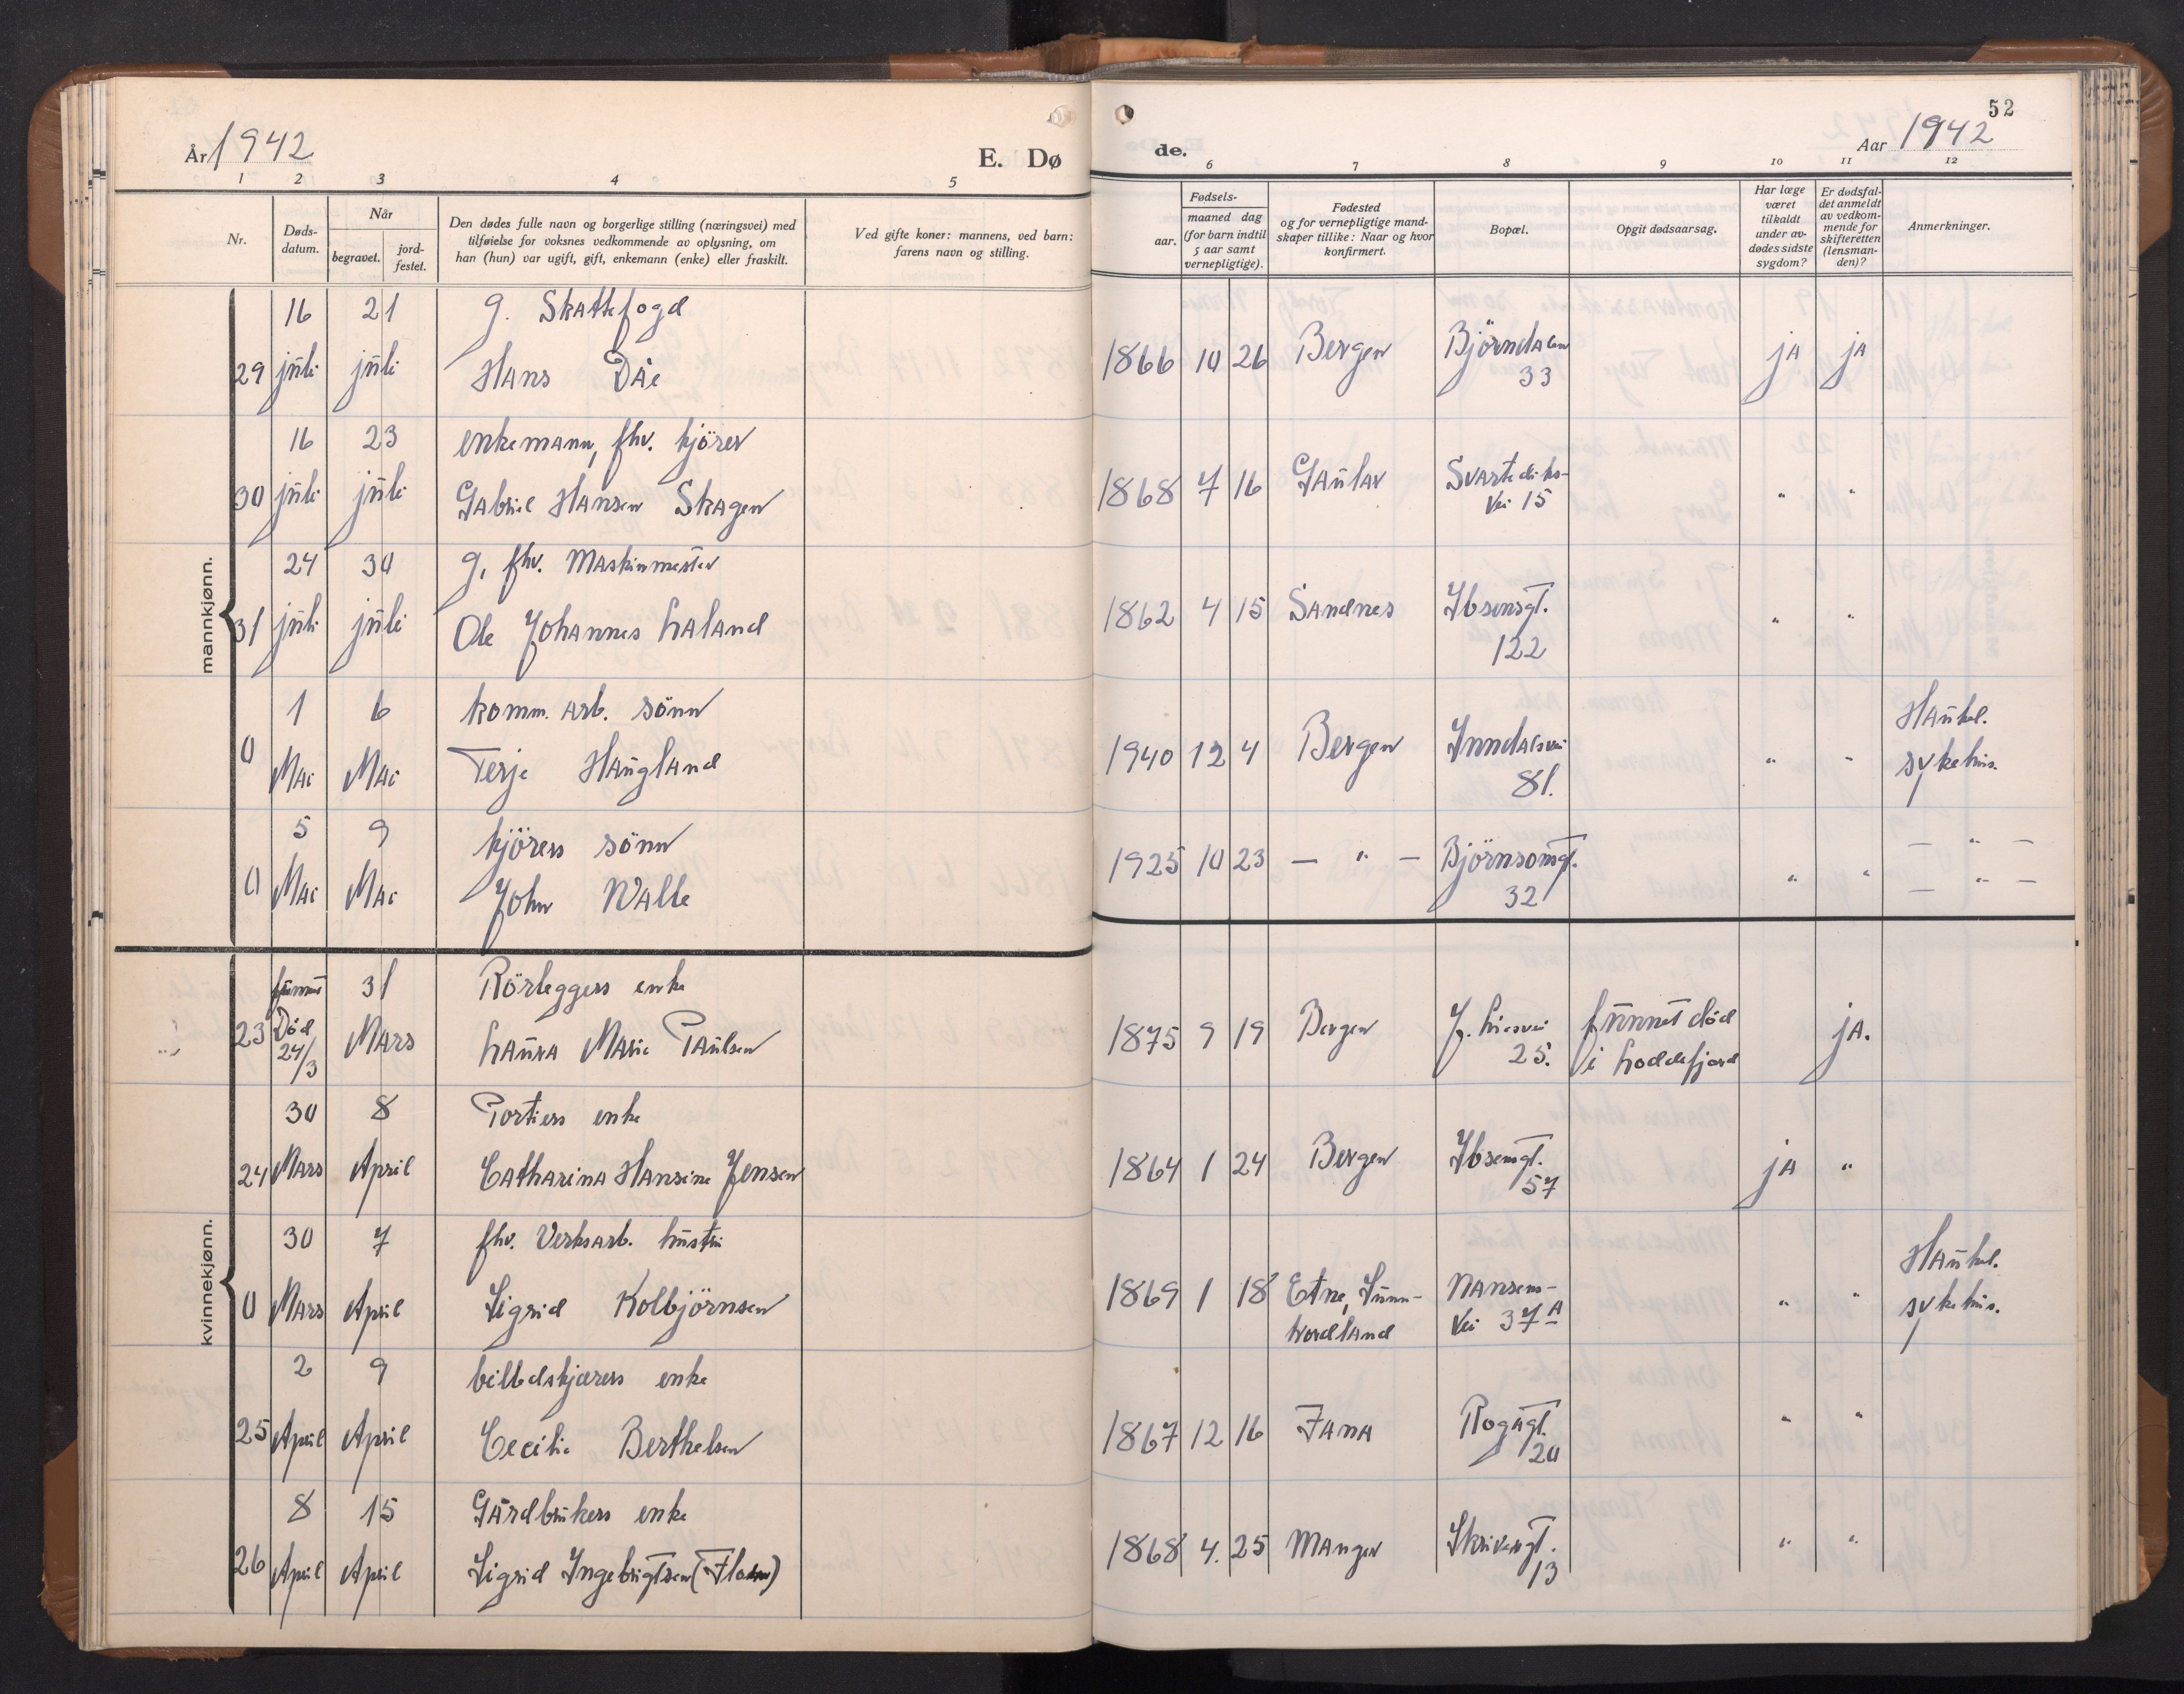 År 1942
E. Dø
1 2 3 4 5
Nr.
Døds-
datum.
Når
begravet.
jord-
festet.
Den dødes fulle navn og borgerlige stilling (næringsvei) med
tilføielse for voksnes vedkommende av oplysning, om
han (hun) var ugift, gift, enkemann (enke) eller fraskilt.
Ved gifte koner: mannens, ved barn:
farens navn og stilling.
mannkjønn.
16 21 g. Skattefogd
29 juli juli Hans Dåe
16 23 enkemann, fhv. kjörer
30 juli juli Gabriel Hansen Skagen
24 30 g. fhv. Maskinmester
31 juli juli Ole Johannes Laland
1 6 komm. arb. sönn
0 Mai Mai Terje Haugland
5 9 kjörers sönn
0 Mai Mai John Walle
kvinnekjønn.
funnet 31 Rörleggers enke
23 Död Mars Laura Marie Paulsen
24/3
30 8 Portiers enke
24 Mars April Catharina Hansine Jensen
30 7 fhv. Verksarb. hustru
0 Mars April Sigrid Kolbjörnsen
2 9 billedskjærers enke
25 April April Cecilie Berthelsen
8 15 Gårdbrukers enke
26 April April Sigrid Ingebrigtsen
52
de.
Aar 1942
6 7 8 9 10 11 12
Fødsels-
aar.
maaned dag
(for barn indtil
5 aar samt
vernepligtige).
Fødested
og for vernepligtige mand-
skaper tillike: Naar og hvor
konfirmert.
Bopæl.
Opgit dødsaarsag.
Har læge
været
tilkaldt
under av-
dødes sidste
sygdom?
Er dødsfal-
det anmeldt
av vedkom-
mende for
skifteretten
(lensman-
den)?
Anmerkninger.
1866 10 26 Bergen Björndalen ja ja
33
1868 7 16 Gaular Svartediks- " "
Vei 15
1862 4 15 Sandnes Ibsensgt. " "
122
1940 12 4 Bergen Inndalsvei " " Haukel.
81. sykehus.
1925 10 23 — " — Björnsonsgt. " " — " —
32 — " —
1875 9 19 Bergen J. Liesvei funnet död ja.
25. i Loddefjord
1864 1 24 Bergen Ibsensgt. ja "
57
1869 1 18 Etne, Sunn- Nansens- " " Haukel.
hordland Vei 37A sykehus.
1867 12 16 Fana Rogagt. " "
20
1868 4. 25 Manger Skrivergt. " "
13